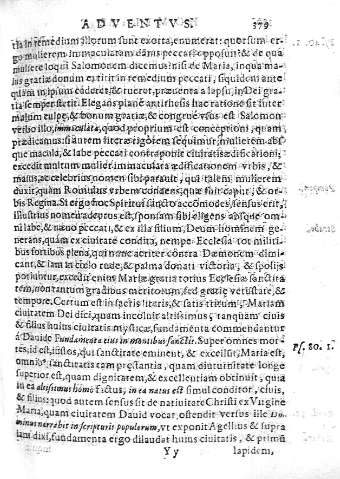 ADVENTVS. 379
tia in remedium illorum sunt exorta, enumerat: quorsum er-
go mulierem immaculatam damnis peccati opposuit? & de qua
muliere loqui Salomonem dicemus nisi de Maria, in qua ma-
lus gratiæ donum extitit in remedium peccati, siquidem ante
quam in ipsum caderet, & rueret, præuenta a lapsu, in Dei gra-
tia semper stetit. Elegans plane antithesis hac ratione sit inter
malum culpæ, & bonum gratiæ, & congrue vsus est Salomon
verbo illo, immaculata, quod proprium est conceptioni, quam
prædicamus: si autem literæ rigorem sequimur, mulierem abs-
que macula, & labe peccati contraponit ciuitatis ædificationi;
excedit multum mulier immaculata ædificationem vrbis, &
maius, ac celebrius nomen sibi parauit, qui talem mulierem
duxit, quam Romulus vrbem condens, quæ fuit caput, & or-
bis Regina. Si ergo hoc Spiritui sancto accommodes, sensus erit,
illustrius nomen adeptus est, sponsam sibi eligens absque om-
ni labe, & næuo peccati, & ex illa filium Deum hominem ge-
nerans, quàm ex ciuitate condita, nempe Ecclesia tot militi-
bus fortibus plena, qui nunc acriter contra Dæmonem dimi-
cant, & iam in cælo rude, & palma donati victoria, & spolijs
potiuntur, excedit enim Mariæ gratia totius Ecclesiæ sanctita
tem, non tantum gradibus meritorum, sed gratiæ vetustate, &
tempore. Certum est in sacris literis, & satis tritum, Mariam
ciuitatem Dei dici, quam incoluit altissimus, tanquàm ciuis
& filius huius ciuitatis mysticæ, fundamenta commendantur
à Dauide Fundamenta eius in montibus sanctis. Super omnes mon-
tes, id est, iustos, qui sanctitate eminent, & excellunt, Maria est,
omnibus sanctitatis tam præstantia, quam diuturnitate longe
superior est, quam dignitatem, & excellentiam obtinuit, quia
in ea altissimus homo factus, in ea natus est simul conditor, ciuis,
& filius: quod autem sensus sit de natiuitate Christi ex Virgine
Maria, quam ciuitatem Dauid vocat, ostendit versus ille Do-
minus narrabit in scripturis populorum, vt exponit Agellius & supra
iam dixi, fundamenta ergo dilaudat huius ciuitatis, & primũ
Yy lapidem,
Ps. 80. 1.